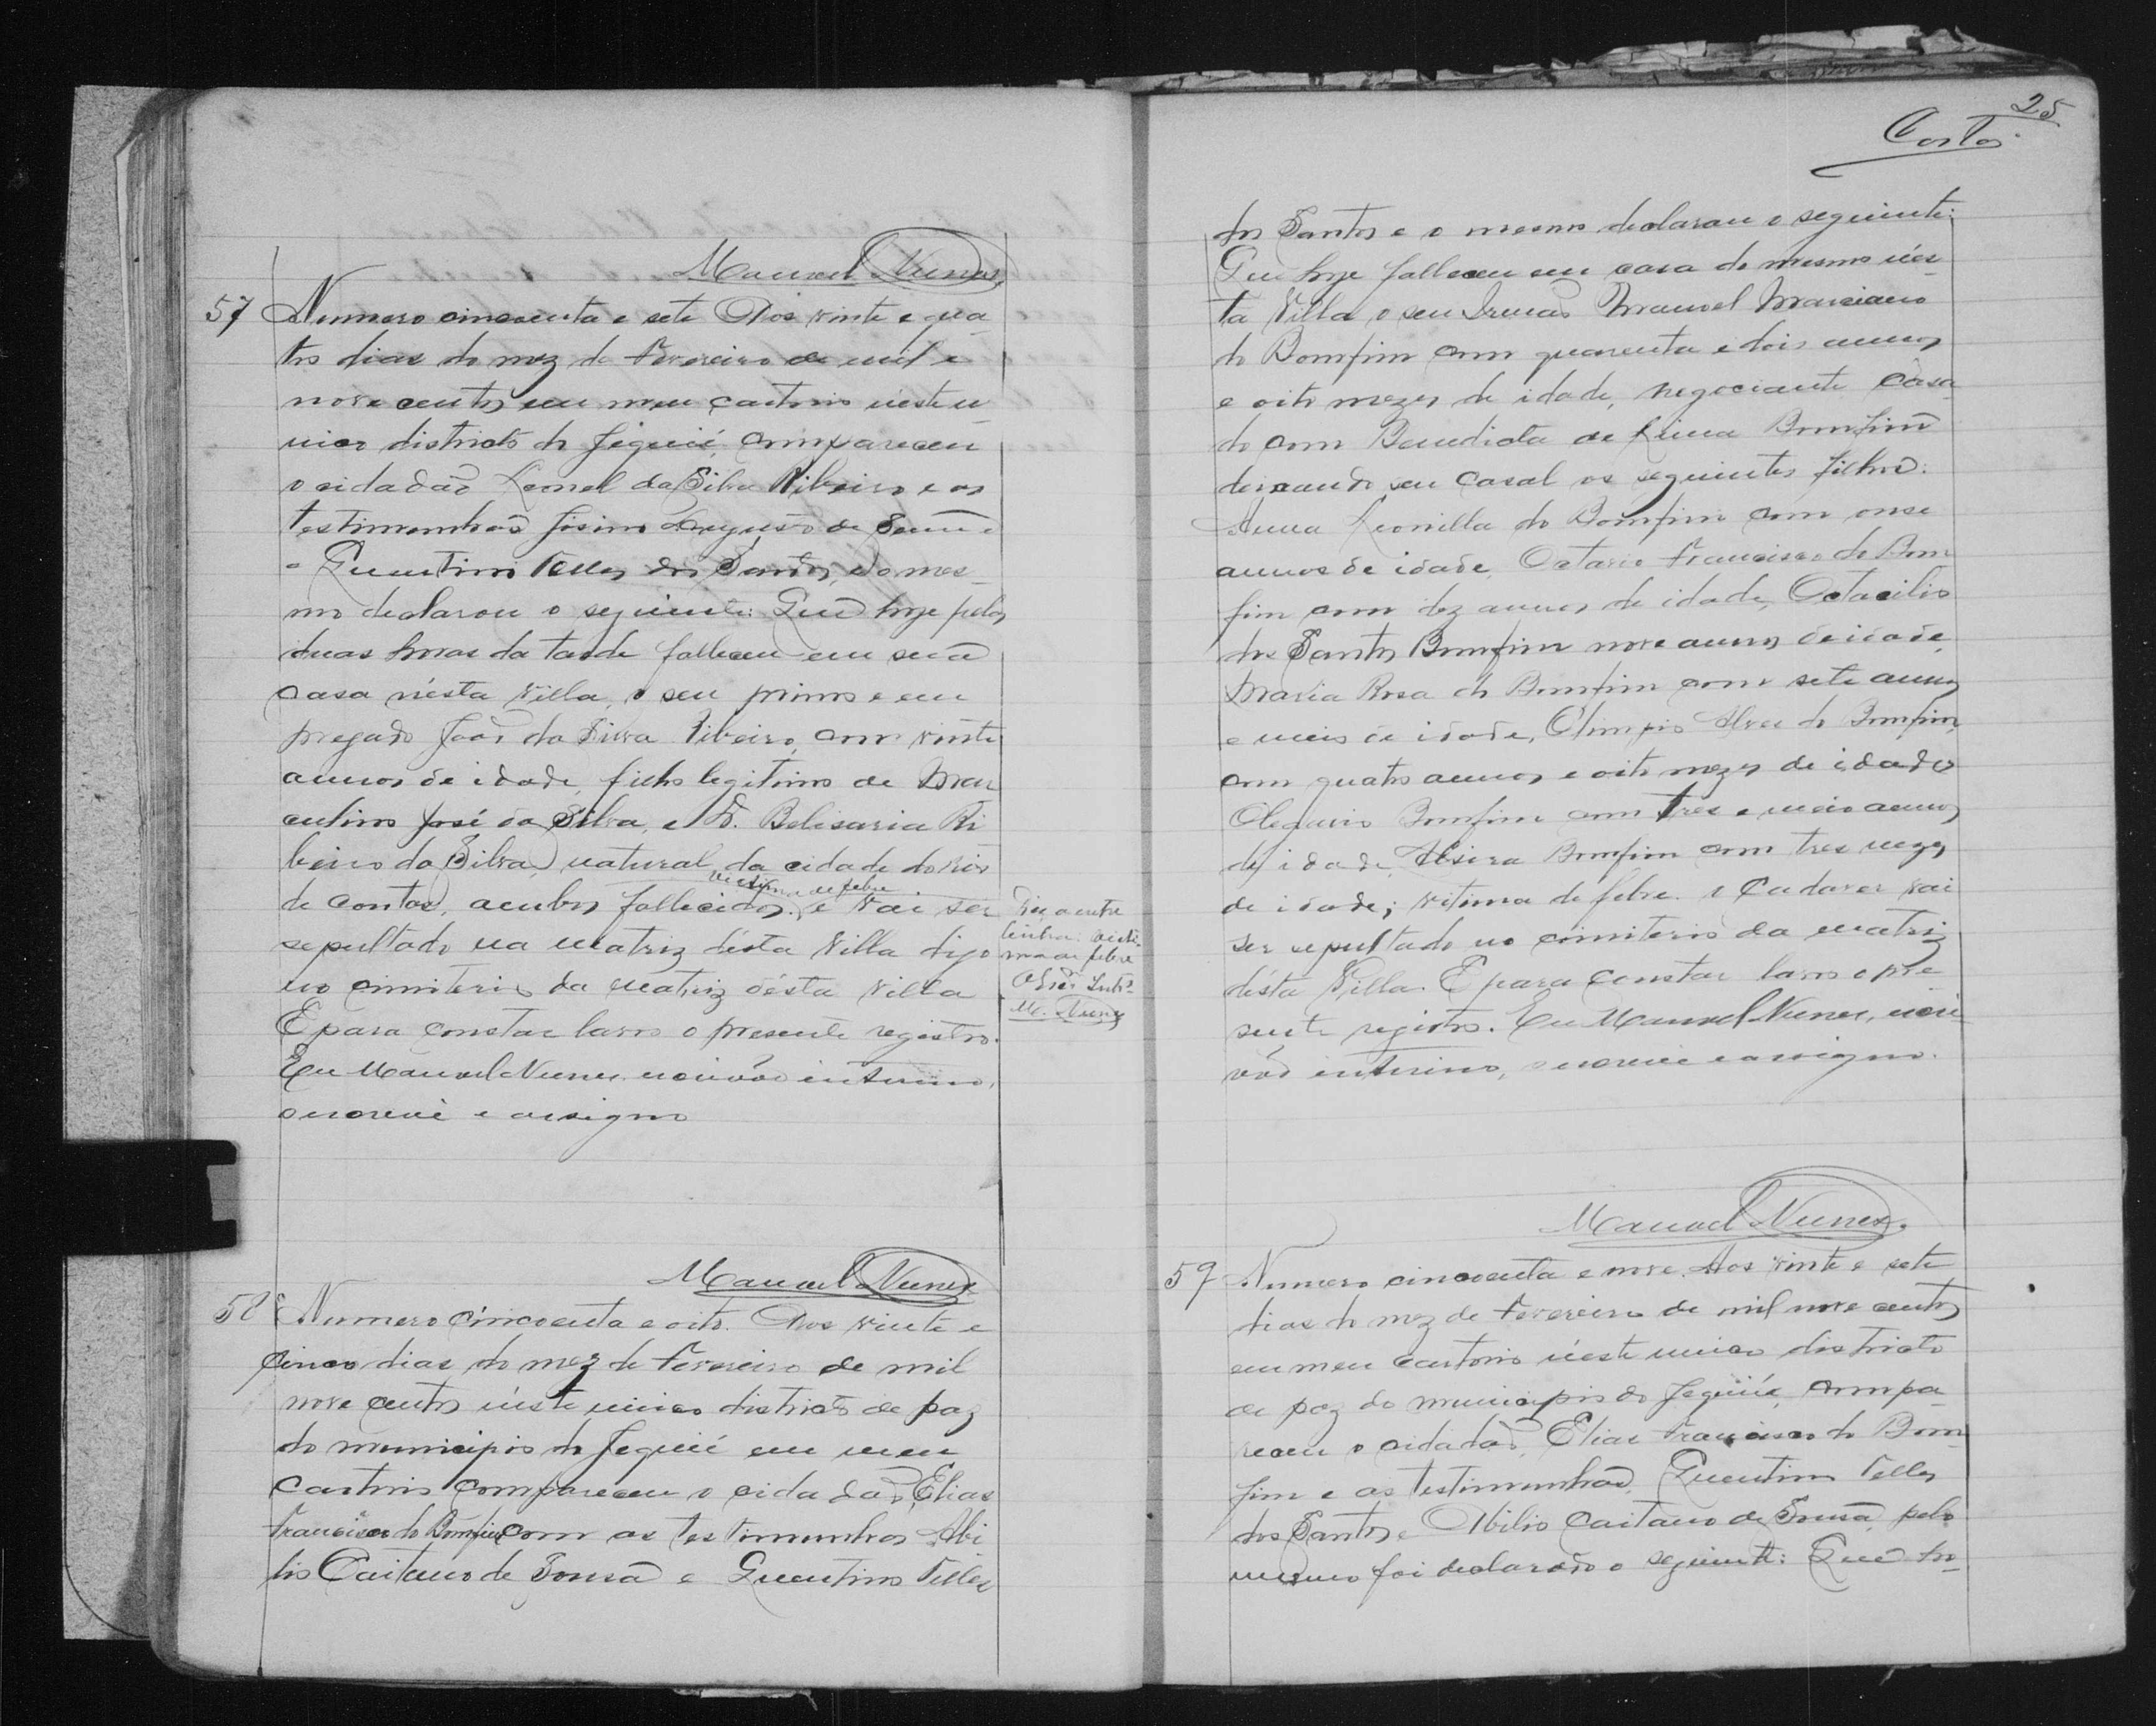 Manoel Nunes
57 Numero cincoenta e sete Aos vinte e qua
tro dias do mez de Fevereiro de mil e
nove centos em meu cartorio n'este u
nico districto de Jequié, compareceu
o cidadão Leonel da Silva Ribeiro e as
testimunhas Augusto de Senna
e Quentino Telles dos Santos, e o mes-
mo declarou o seguinte: Que hoje pelas
duas horas da tarde falleceu em sua
casa n'esta Villa, o seu primo e em
pregado João da Silva Ribeiro, com vinte
annos de idade, filho legitimo de
José da Silva, e D. Belisaria Ri
beiro da Silva, natural da cidade do rio
victima de febre
de contas, ambos fallecidos. e vai ser
sepultado na matriz désta Villa digo
no cimiterio da matriz désta Villa
E para constar lavro o presente registro.
Eu Manoel Nunes escrivão interino,
o escrevi e assigno
Diz a entre
linha: victi-
ma de febre
M. Nunes
Manoel Nunes
58 Numero cincoenta e oito. Aos vinte e
cinco dias do mez de Fevereiro de mil
nove centos néste unico districto de paz
do municipio de Jequié em meu
cartorio compareceu o cidadão, Elias
Francisco do Bomfim com as testimunhas Abi
lio Caitano de Sousa e Quentino Telles
25
Costa
dos Santos e o mesmo declarou o seguinte:
Que hoje falleceu em casa do mesmo n'es-
ta Villa o seu Irmão Manoel Marciano
do Bomfim com quarenta e dois annos
e oito mezes de idade, negociante, casa
do com Benedicta de Lima Bomfim
deixando seu casal os seguintes filhos:
Anna Leonilla do Bomfim com onse
annos de idade, Octavio Francisco do Bom
fim com dez annos de idade, Octacilio
dos Santos Bomfim nove annos de idade,
Maria Rosa do Bomfim com sete annos
e meio de idade, Olimpio Alves do Bomfim,
com quatro annos e oito mezes de idade
Olegario Bomfim com tres e meio annos
de idade, Bomfim com tres mezes
de idade; vitima de febre. o Cadaver vai
ser sepultado no cimiterio da matriz
désta Villa. E para constar lavro o pre
sente registro. Eu Manoel Nunes, escri
vão interino, o escrevi e assigno.
Manoel Nunes.
59 Numero cincoenta e nove. Aos vinte e sete
dias do mez de Fevereiro de mil nove centos
em meu cartorio n'este unico districto
de paz do municipio de Jequié, compa-
receu o cidadão, Elias Francisco do Bom
fim e as testimunhas, Quentino Telles
dos Santos e Abilio Caitano de Sousa, pelo
mesmo foi declarado o seguinte: Que ho-